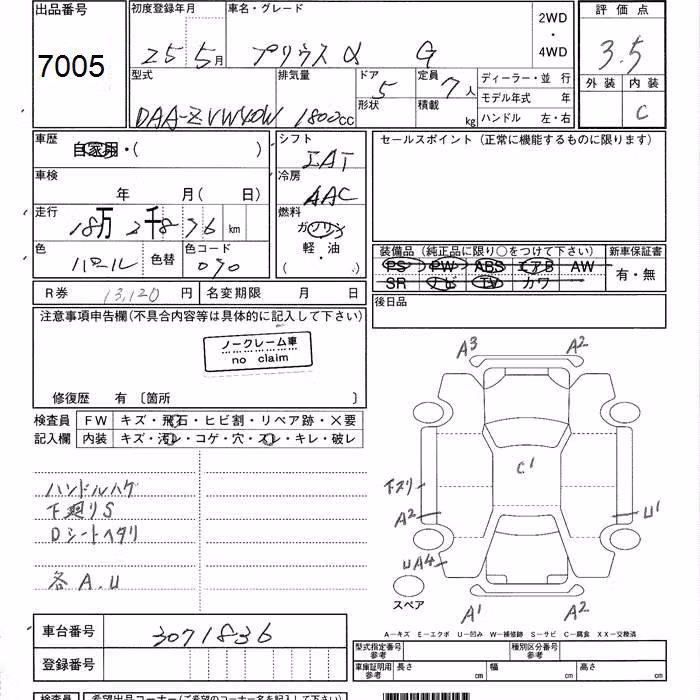 出品番号
7005
初度登録年月
25 5月
車名・グレード
プリウスα G
2WD
・
4WD
評価点
3.5
外装 内装
C
型式
DAA-ZVW40W
排気量
1800cc
ドア
5
形状
定員
7人
積載
kg
ディーラー・並行
モデル年式 年
ハンドル 左・右
車歴
自家用・( )
車検
年 月( 日)
走行
18万2千876km
色
パール
色替
色コード
070
シフト
IAT
冷房
AAC
燃料
ガソリン
軽・油
( )
セールスポイント(正常に機能するものに限ります)
装備品(純正品に限り○をつけて下さい)
PS PW ABS エアB AW
SR ナビ TV カワ
新車保証書
有・無
後日品
R券 13,120円
名変期限 月 日
注意事項申告欄(不具合内容等は具体的に記入して下さい)
ノークレーム車
no claim
修復歴 有〔箇所 〕
検査員
記入欄
FW キズ・飛石・ヒビ割・リペア跡・×要
内装 キズ・汚レ・コゲ・穴・スレ・キレ・破レ
ハンドルハゲ
下廻りS
Dシートヘタリ
各A.U
A3
A2
C1
下スリ
A2
U1
UA4
スペア
A1
A2
A-キズ E-エクボ U-凹み W-補修跡 S-サビ C-腐食 XX-交換済
車台番号
3071836
登録番号
型式指定番号
参考
種別区分番号
参考
車庫証明用
参考
長さ cm
幅 cm
高さ cm
検査員
希望出品コーナー(ご希望のコーナー名を記入下さい)